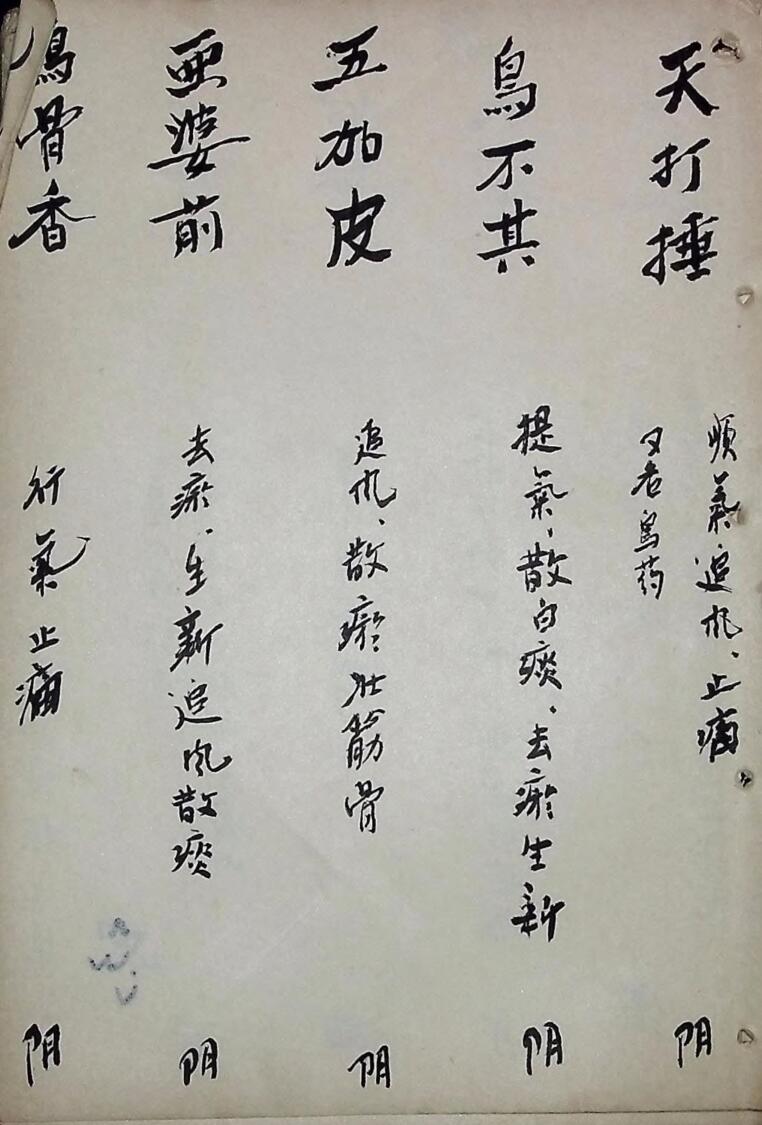 天打捶
順氣追风、止痛
又老鸟药
阴
鸟不其
提氣、散白痰、去瘀生新
阴
五加皮
追风、散瘀壮筋骨
阴
亜婆前
去瘀、生新追风散痰
阴
鸟骨香
行氣止痛
阴